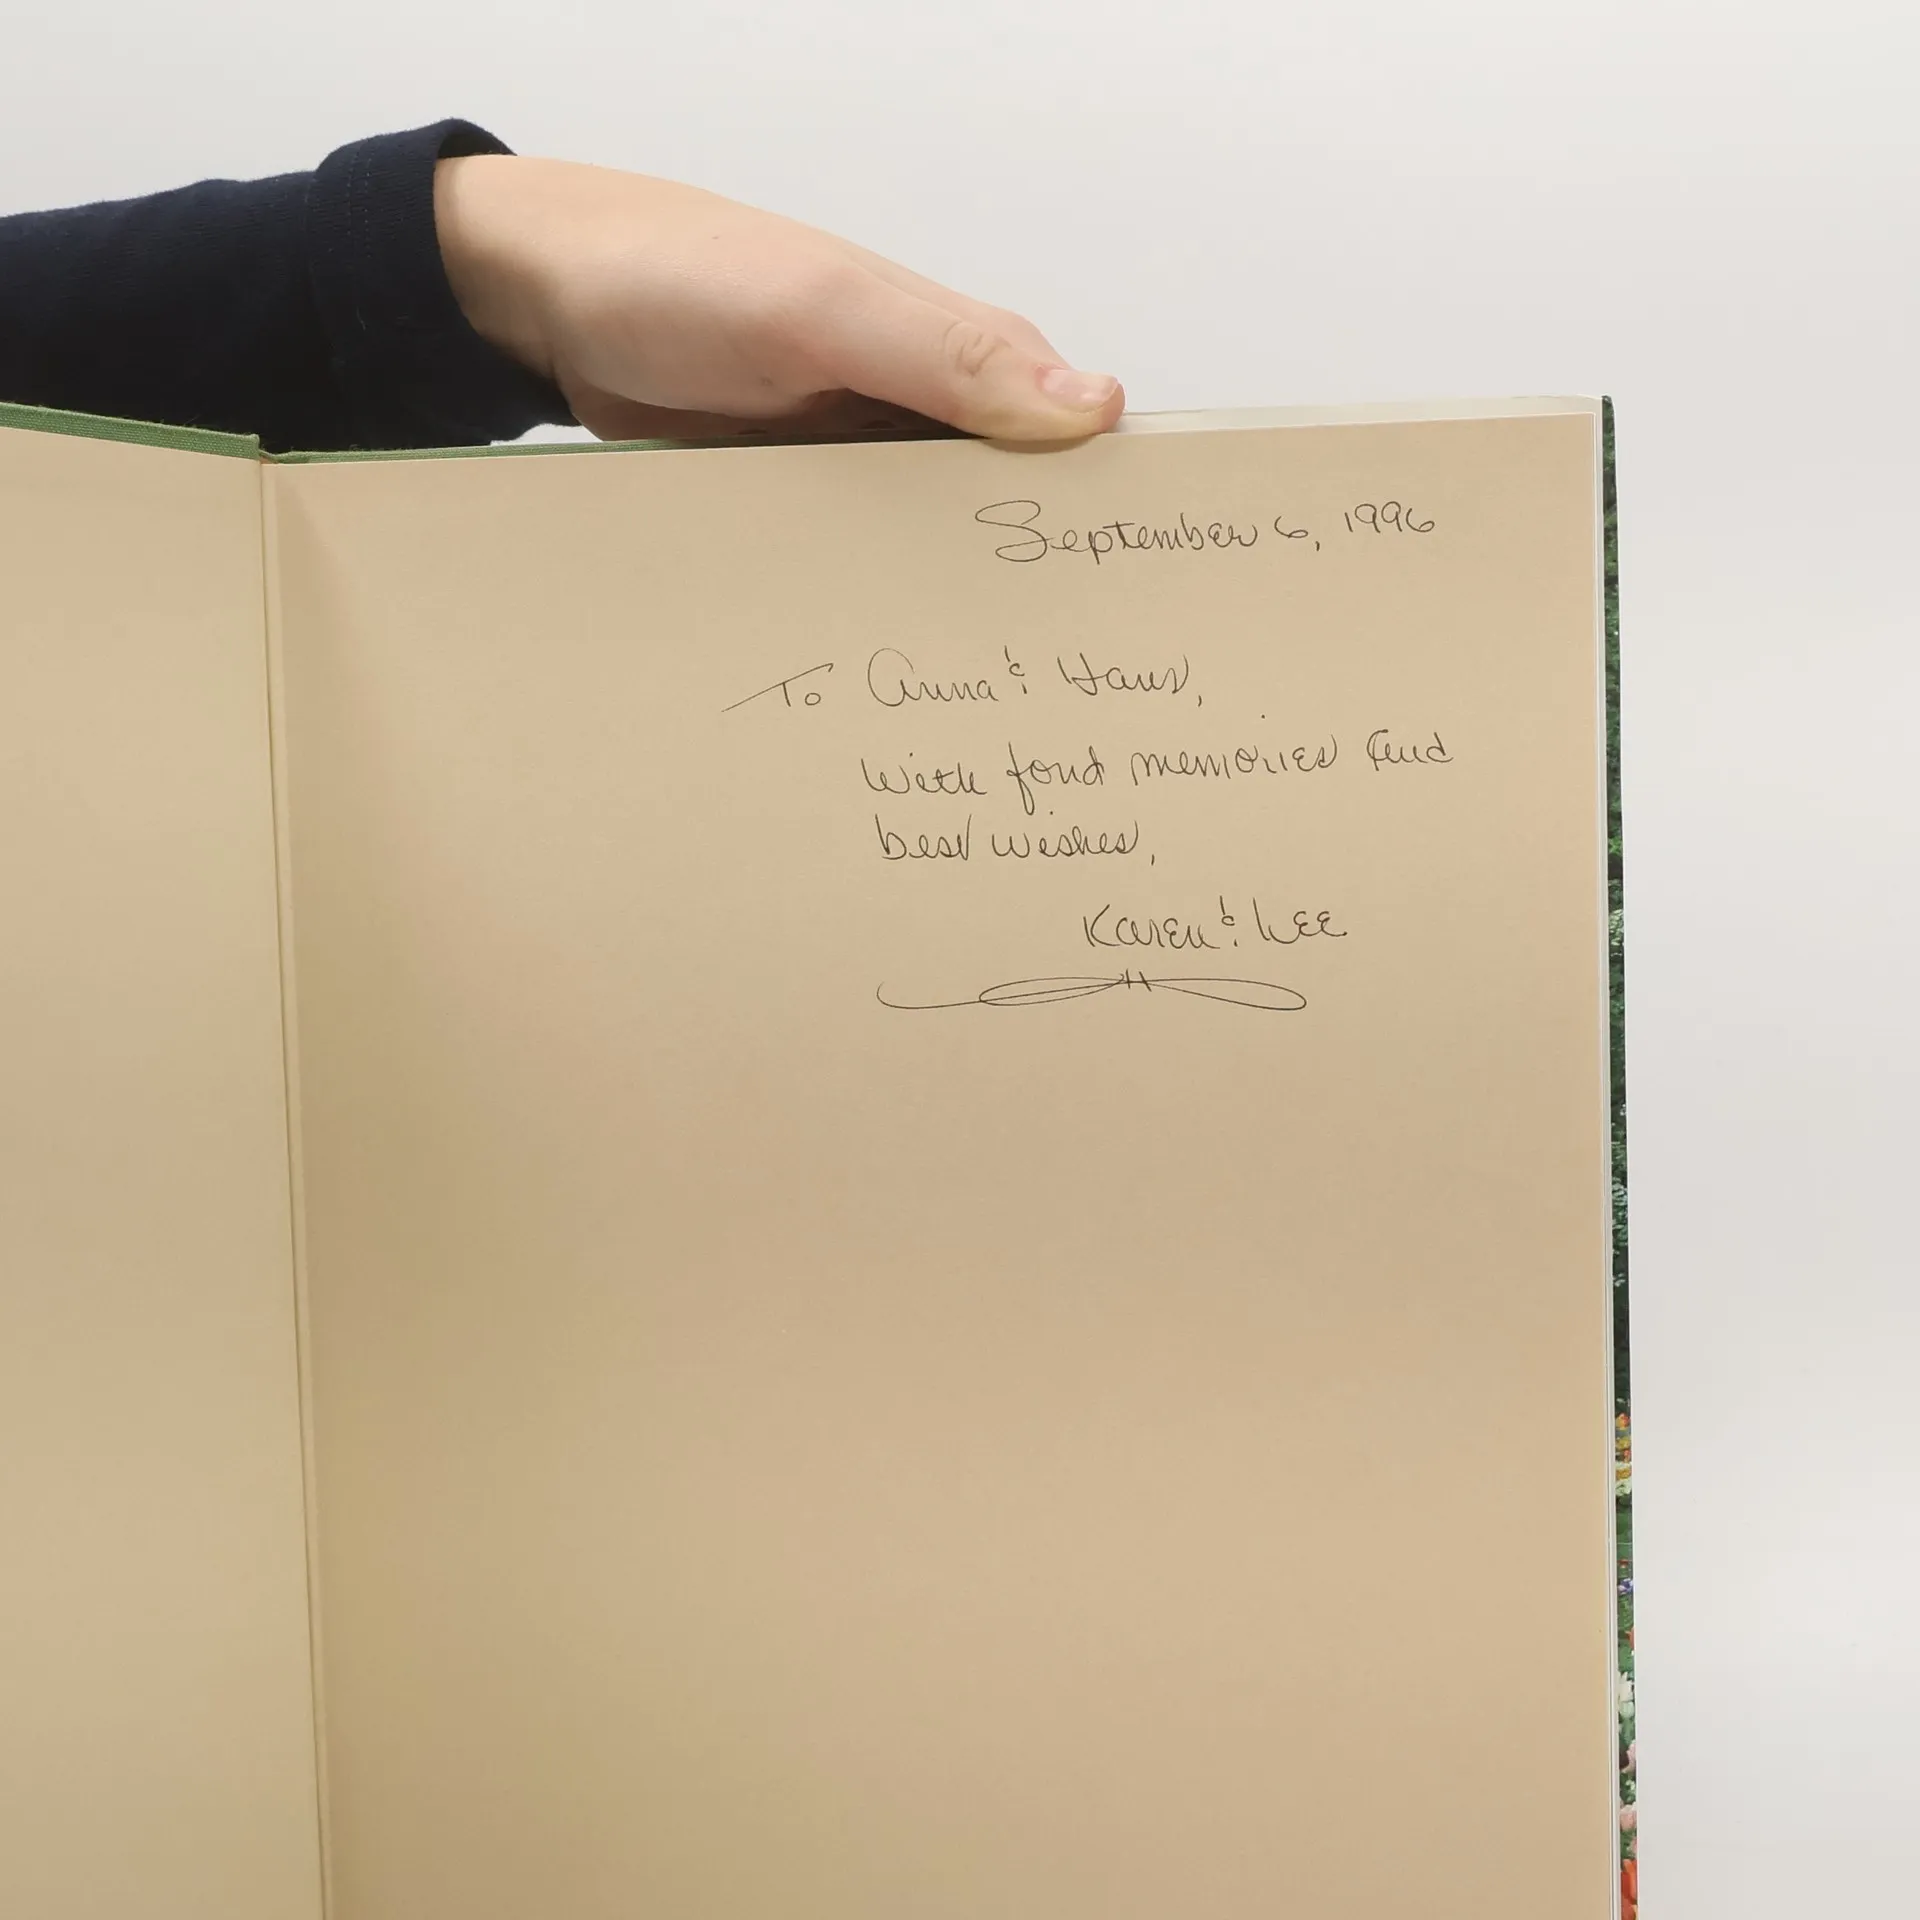 September 6, 1996
To Anna & Hans,
With fond memories and
best wishes,
Karen & Lee